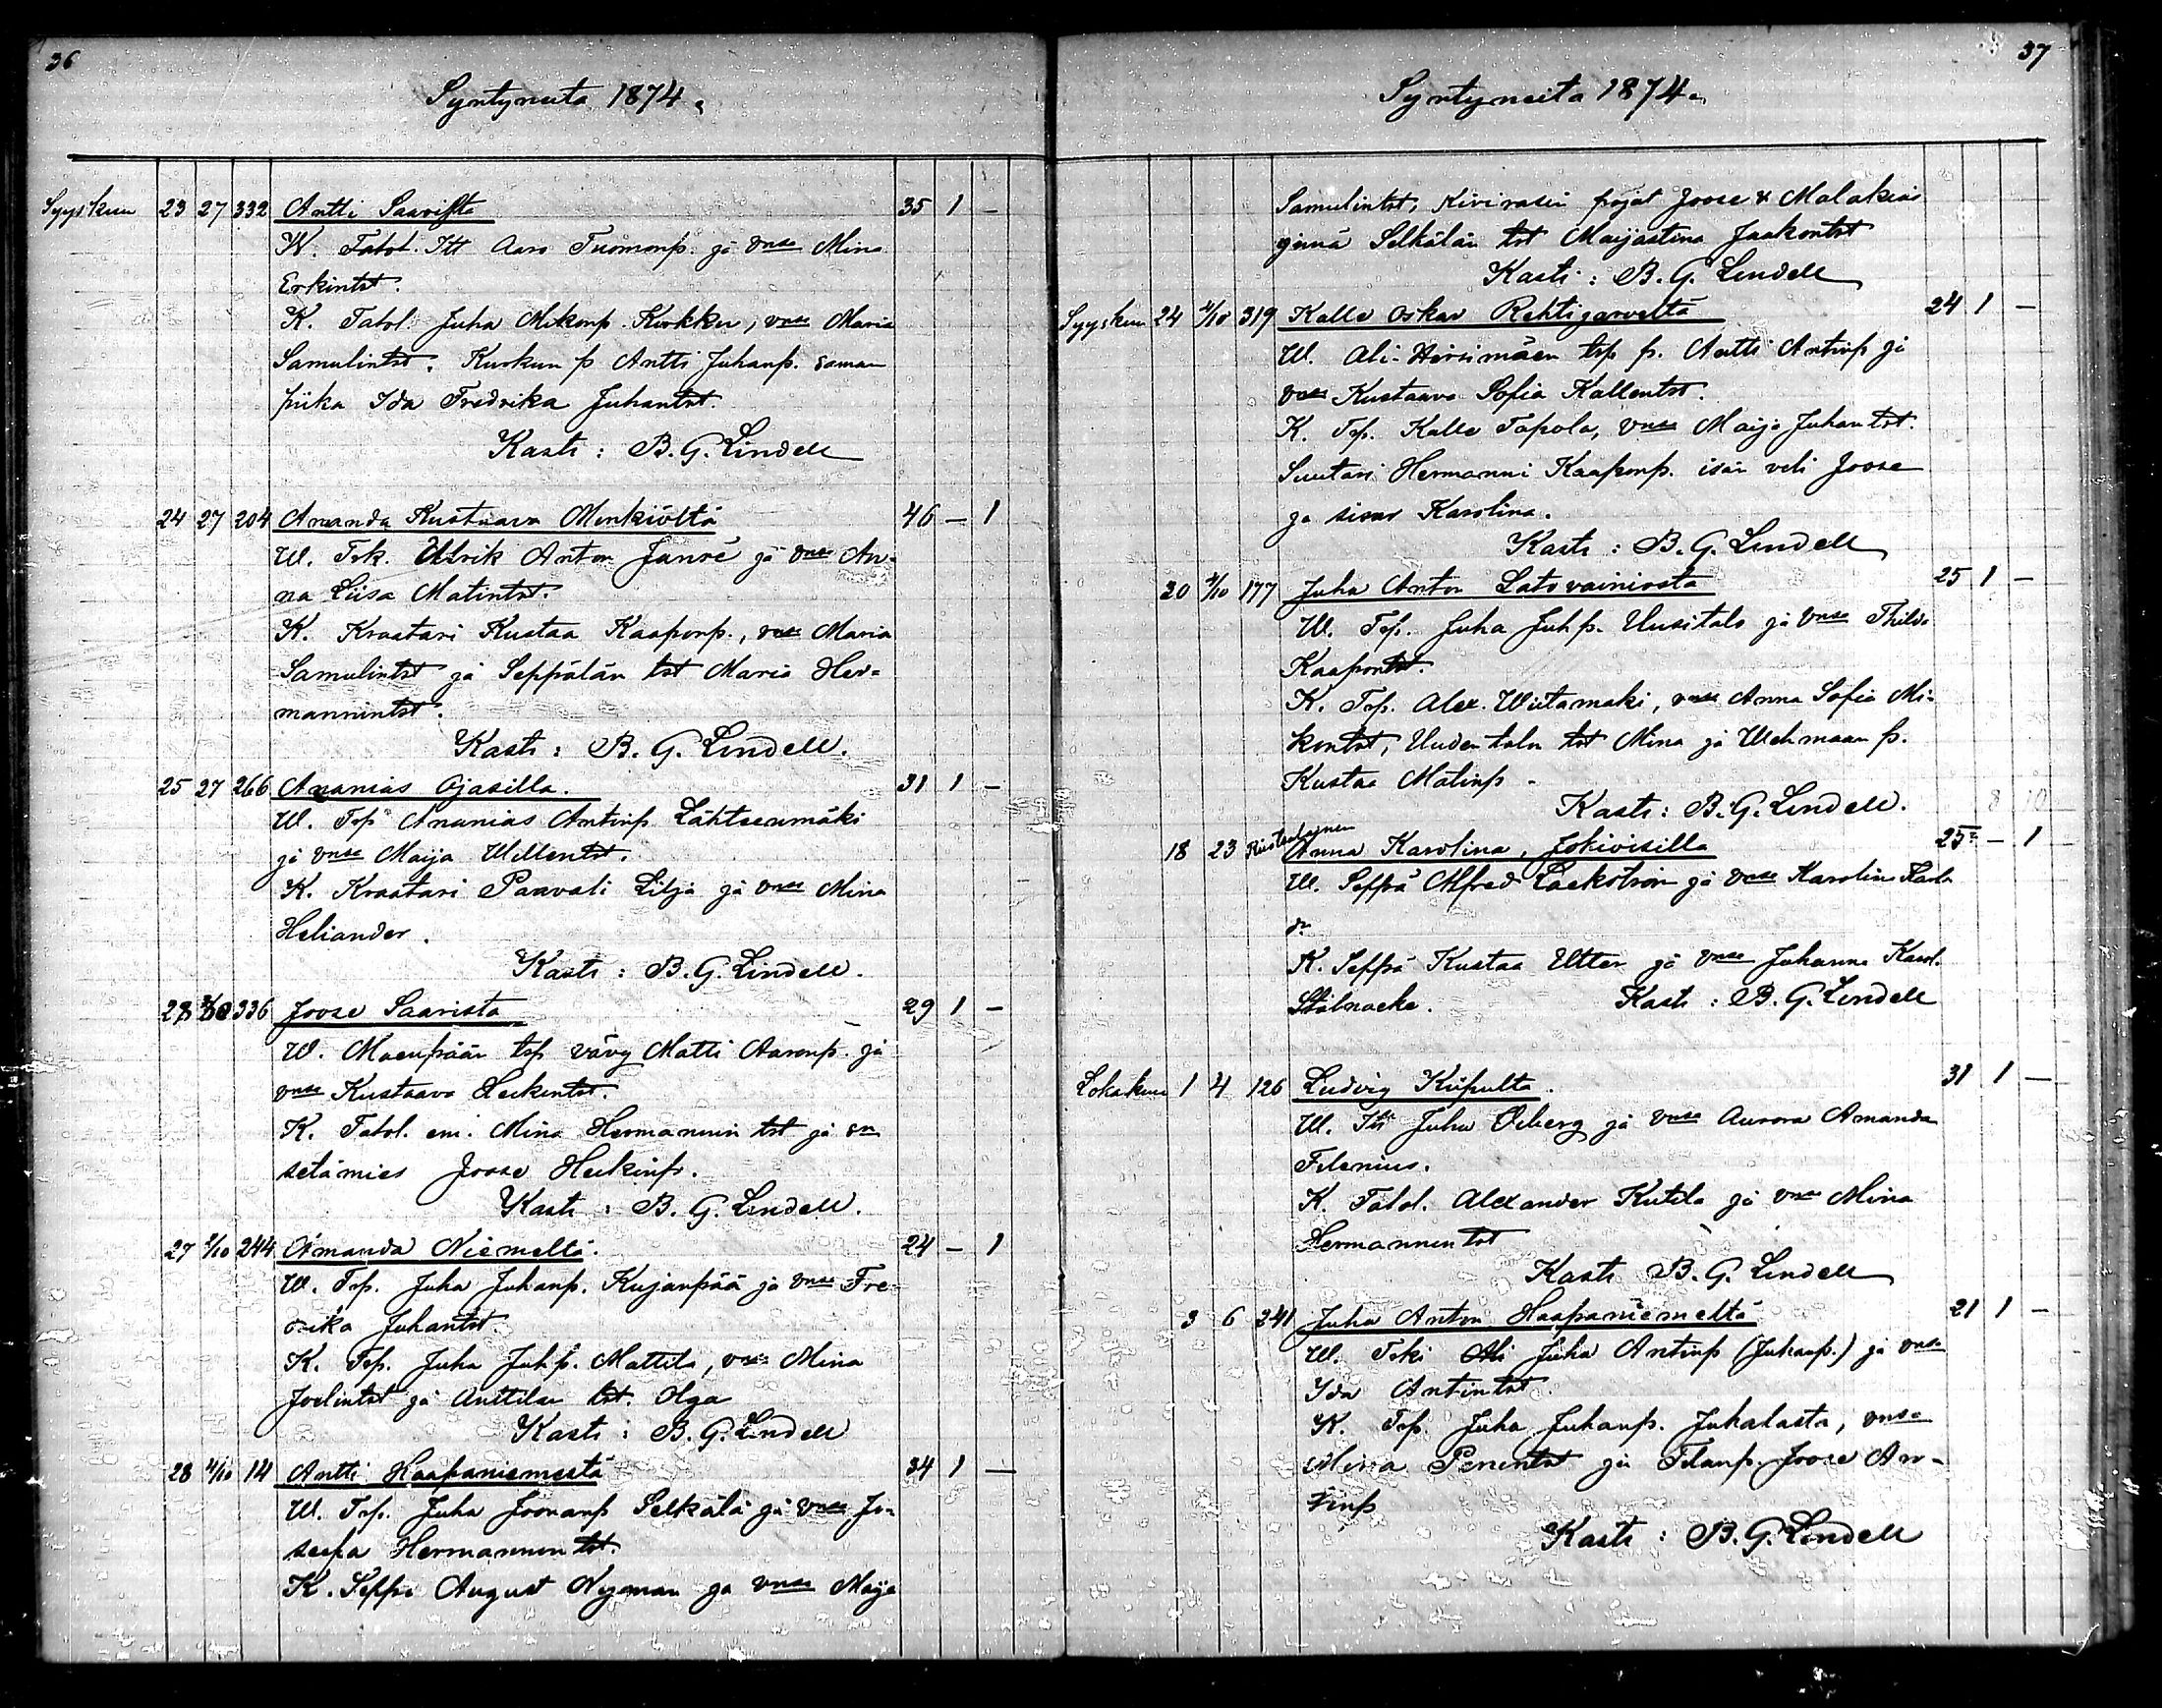 36
Syntyneitä 1874.
Syyskuu 23 27 332 Antti Saarista 35 1 –
W. Tatol. Itt Aaro Tuomonp. ja vmsa Mina
Erkintst.
K. Tatol. Juha Mikonp. Kuokku, vmsa Maria
Samulintst. Kuokun p Antti Juhanp. saman
piika Ida Fredrika Juhantst.
Kasti: B. G. Lindell
24 27 204 Amanda Kustaava Minkiöltä 46 – 1
W. Tsk. Ulrik Anton Janré ja vmsa An-
na Liisa Matintst.
K. Kraatari Kustaa Kaaponp., vmsa Maria
Samulintst ja Seppälän tst Maria Her-
mannintst.
Kasti: B. G. Lindell.
25 27 266 Ananias Ojasilla. 31 1 –
W. Tsp Ananias Antinp Lähteenmäki
ja vmsa Maija Willentst.
K. Kraatari Paavali Lilja ja vmsa Mina
Heliander.
Kasti: B. G. Lindell.
336 Joose Saarista 29 1 –
W. Maenpään tsp vävy Matti Aaronp. ja
vmsa Kustaava Heikintst.
K. Tatol. em. Mina Hermannin tst ja sn
setämies Joose Heikinp.
Kasti: B. G. Lindell.
27 2/10 244 Amanda Niemeltä. 24 – 1
W. Tsp. Juha Juhanp. Kujanpää ja vmsa Fre-
drika Juhantst.
K. Tsp. Juha Juhp. Mattila, vmsa Mina
Joelintst ja Anttilan tst. Olga
Kasti: B. G. Lindell
28 4/10 14 Antti Haapaniemestä 34 1 –
W. Tsp. Juha Joonanp Selkälä ja vmsa Jo-
seefa Hermannin tst.
K. Seppä August Nyman ja vmsa Maija
37
Syntyneitä 1874.
Samulintst, Kivirasin pojat Joose & Malakias
ynnä Selkälän tst Maijastina Jaakontst
Kasti: B. G. Lindell
Syyskuu 24 4/10 319 Kalle Oskar Rahtijarveltä 24 1 –
W. Ali-Hirsimäen tsp p. Antti Antinp ja
vmsa Kustaava Sofia Kallentst.
K. Tsp. Kalle Tapola, vmsa Maija Juhantst.
Suutari Hermanni Kaaponp. isän veli Joose
ja sisar Karolina.
Kasti: B. G. Lindell
30 4/10 177 Juha Anton Latovainiosta 25 1 –
W. Tsp. Juha Juhp. Uusitalo ja vmsa Thilda
Kaapontst.
K. Tsp. Alex. Wiitamaki, vmsa Anna Sofia Mi-
kontst, Uudentalon tst Mina ja Wehmaan p.
Kustaa Matinp –
Kasti: B. G. Lindell.
18 23 Anna Karolina, Jokivisilla 25 – 1
W. Seppä Alfred Laekström ja vmsa Karolina
K. Seppä Kustaa Utter ja vmsa Johanna Karol.
Stålnacke. Kasti: B. G. Lindell
Lokakuu 1 4 126 Ludvig Kiipulta. 31 1 –
W. Itt Juha Öberg ja vmsa Aurora Amanda
Filenius.
K. Tatol. Alexander Kutila ja vmsa Mina
Hermannintst
Kasti B. G. Lindell
3 6 241 Juha Anton Haapaniemeltä 21 1 –
W. Tski Juha Antinp (Juhanp.) ja vmsa
Ida Antintst.
K. Tsp. Juha Juhanp. Juhalasta, vmsa
Mina Penintst ja Tilanp. Joose An-
tinp
Kasti: B. G. Lindell